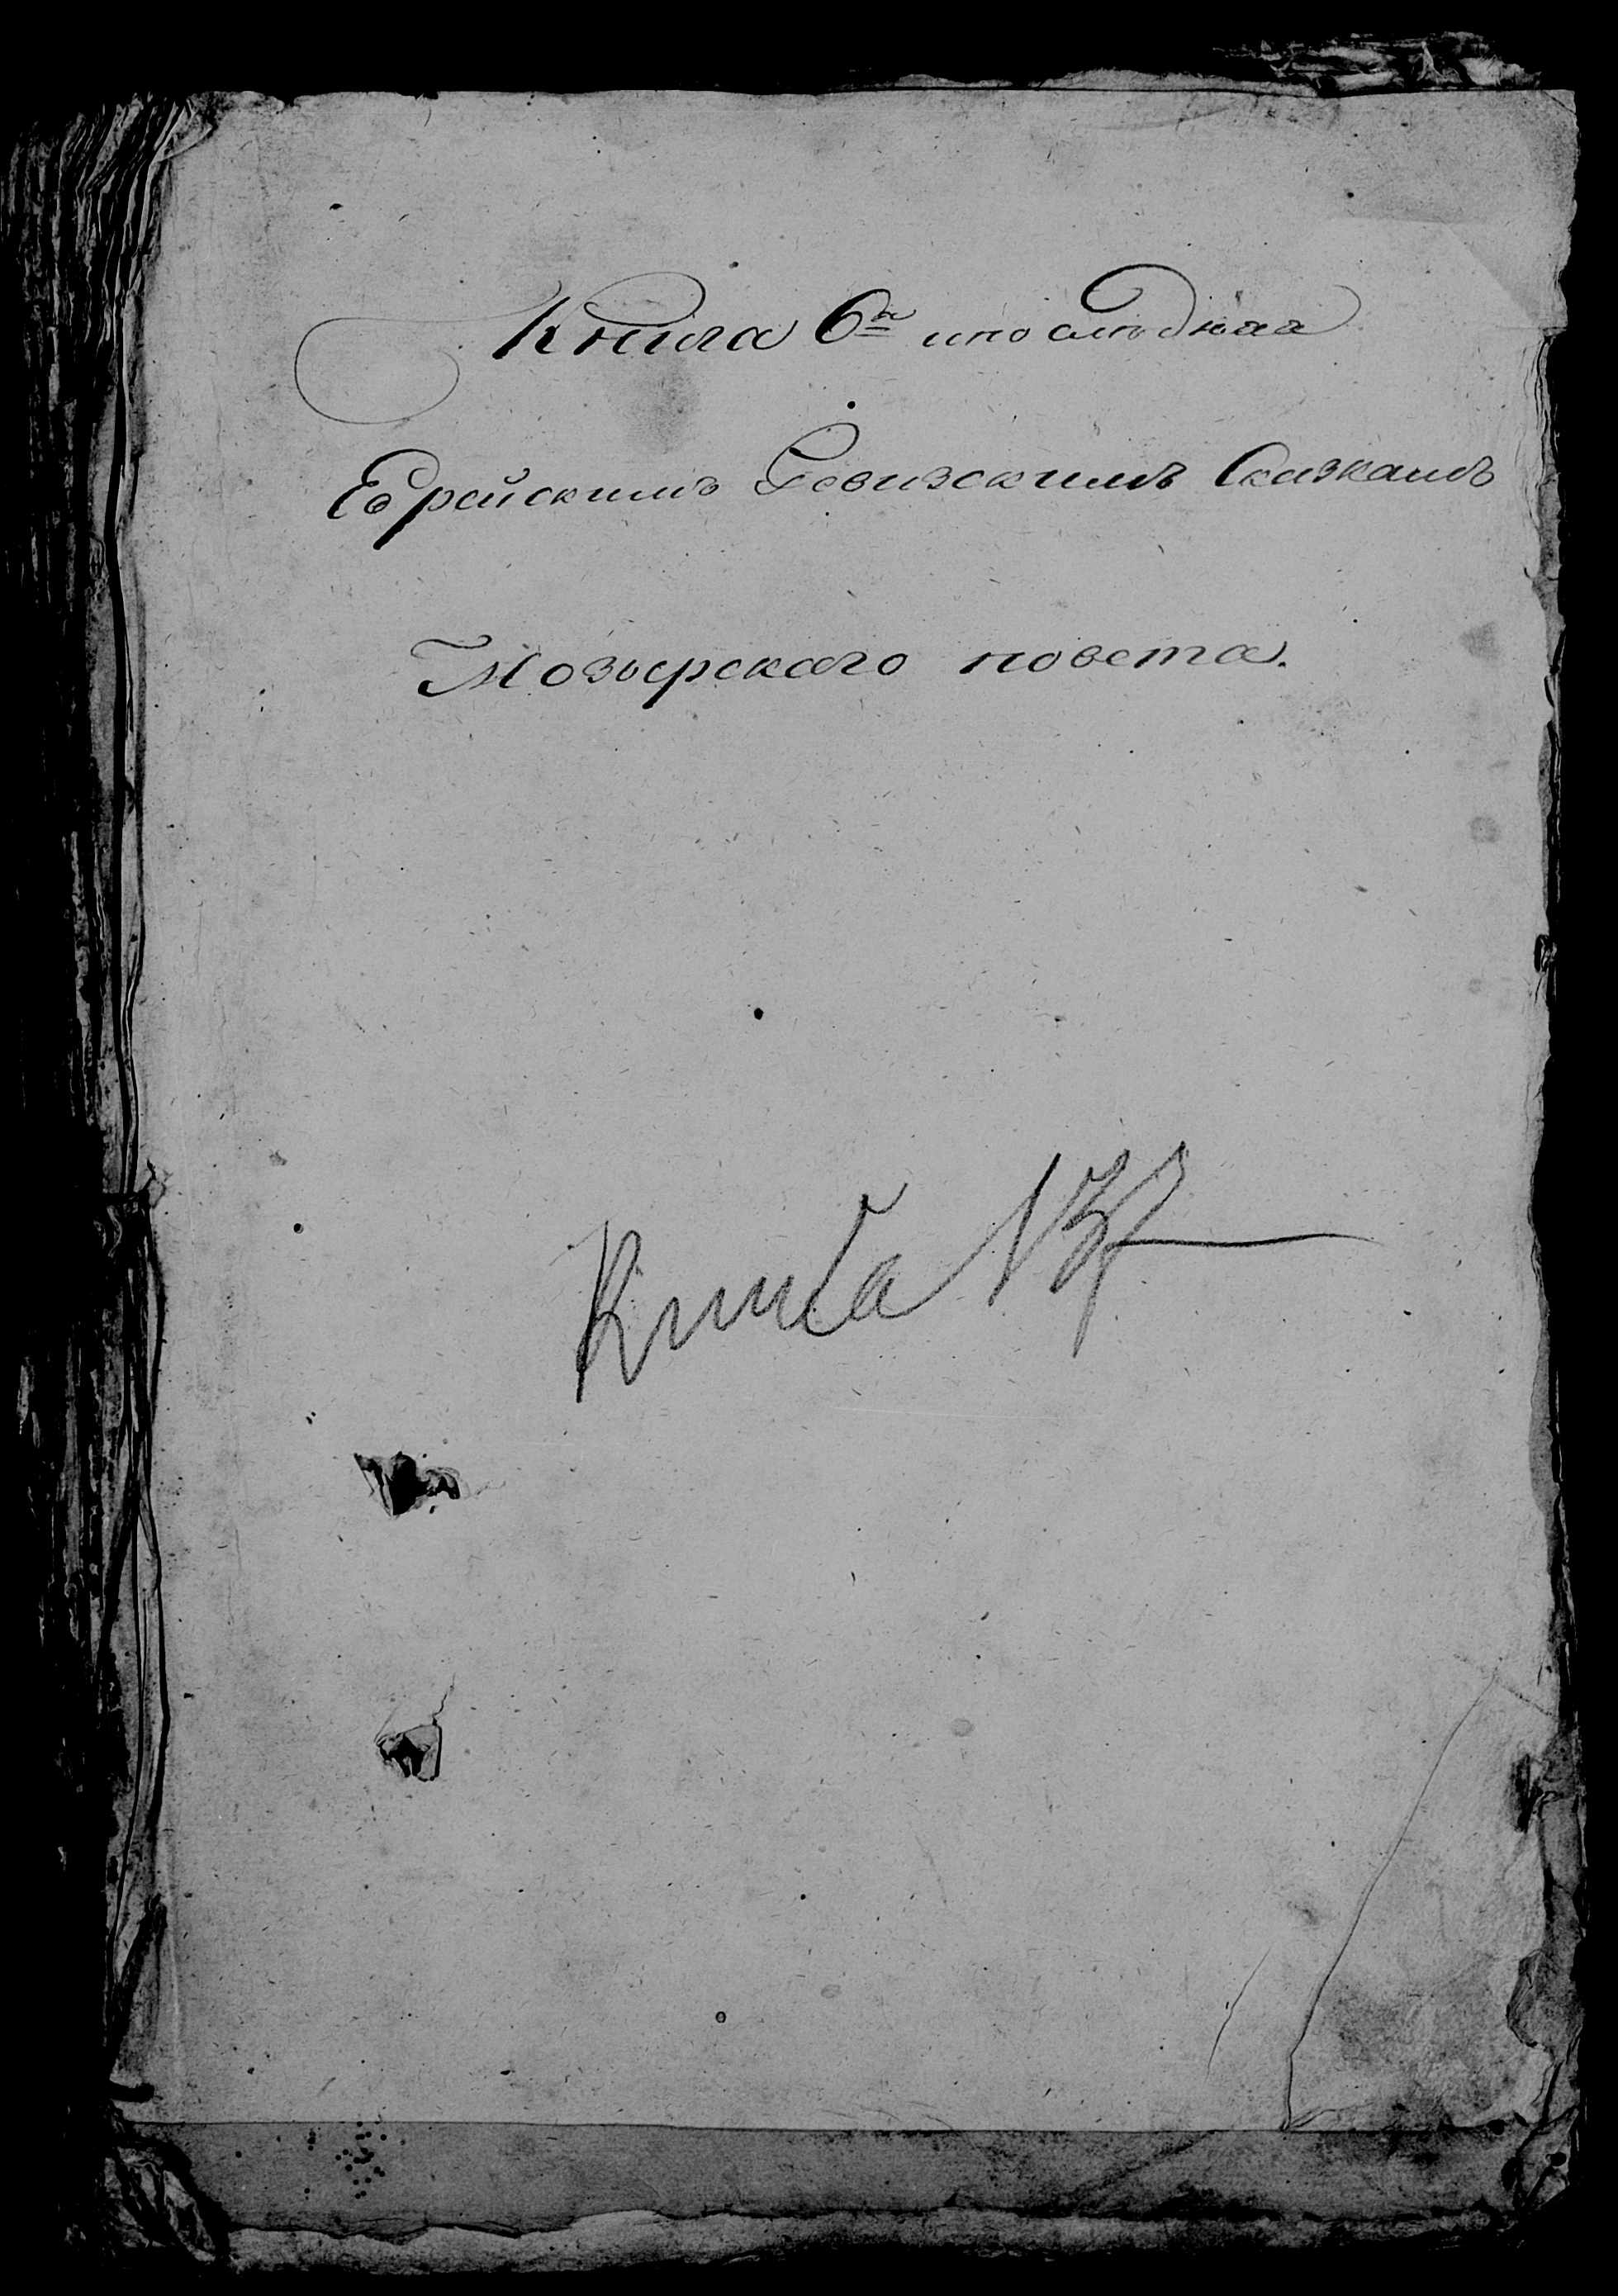 Книга 6<sup>я</sup> и послѣдняя
Еврейскимъ Ревизскимъ Сказкамъ
Мозырскаго повета.
Книга